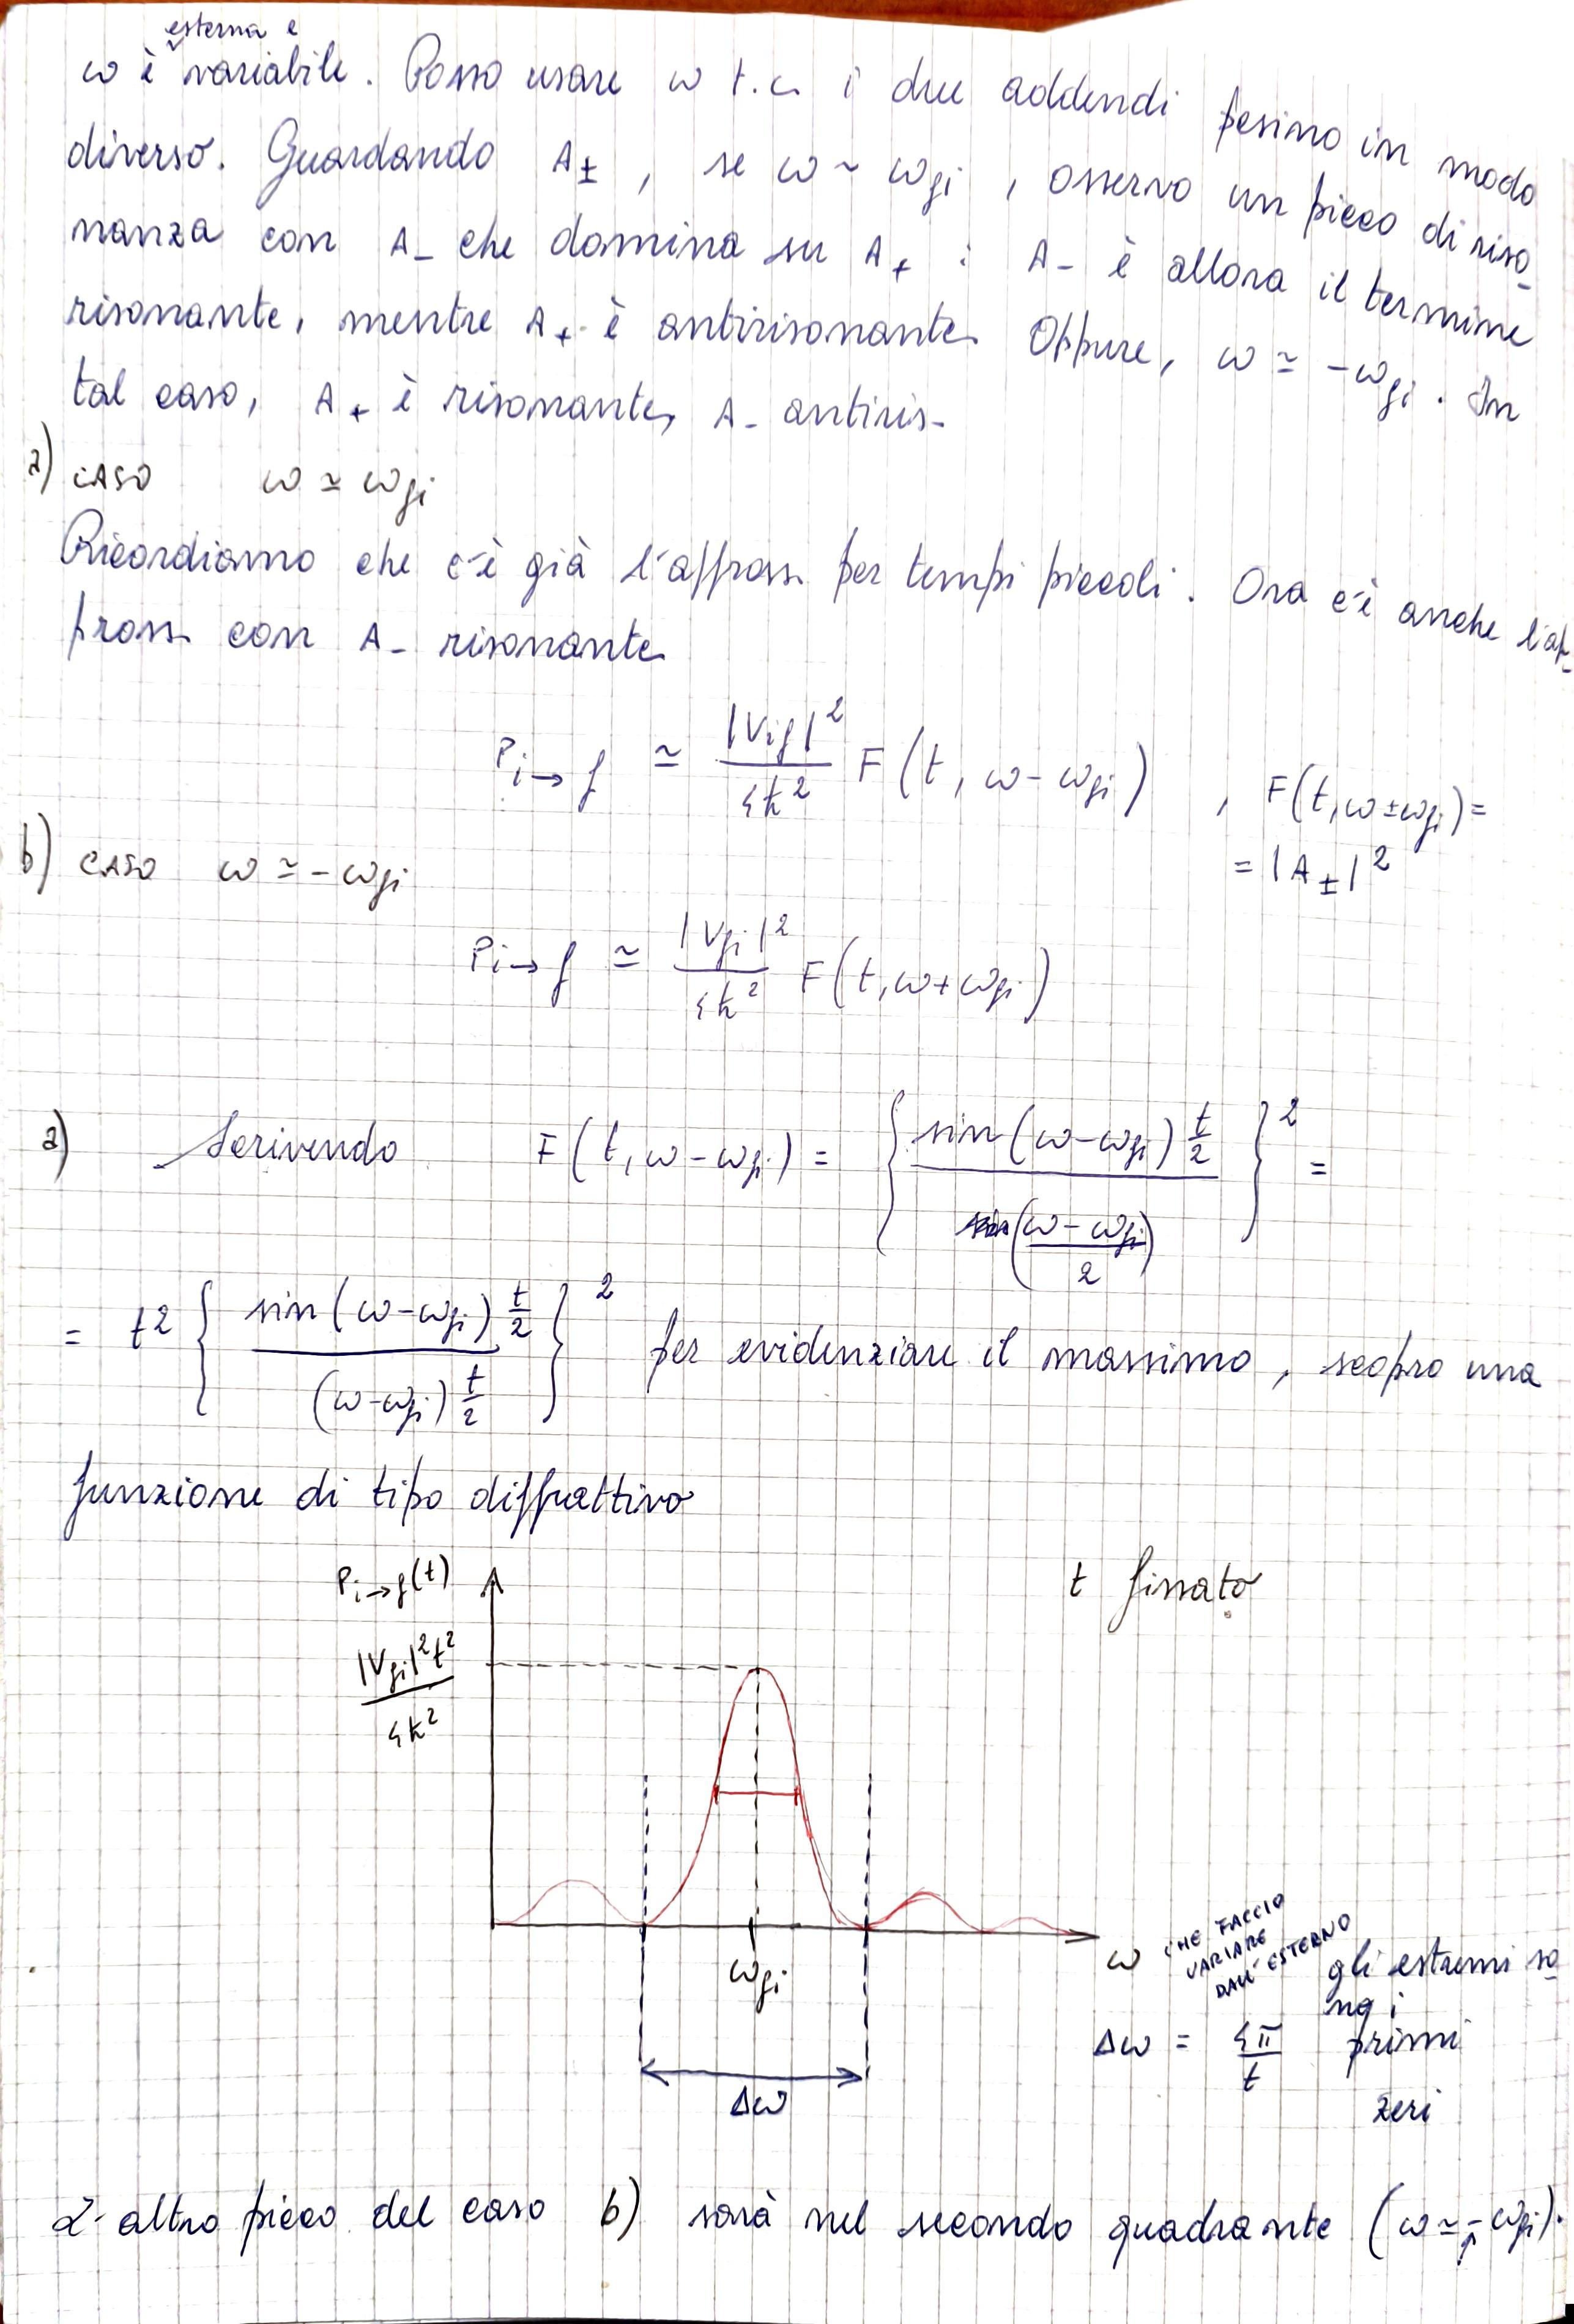 esterna e
ω è variabile. Posso usare ω t.c. i due addendi pesino in modo
diverso. Guardando A±, se ω ~ ωfi, osservo un picco di riso-
nanza con A- che domina su A+ : A- è allora il termine
risonante, mentre A+ è antirisonante. Oppure, ω ≃ -ωfi. In
tal caso, A+ è risonante, A- antiris.
a) CASO ω ≃ ωfi
Ricordiamo che c'è già l'appross. per tempi piccoli. Ora c'è anche l'ap-
pross. con A- risonante.
Pi→f ≃ |Vif|²/4ħ² F(t, ω-ωfi) , F(t,ω±ωfi)=
= |A±|²
b) CASO ω ≃ -ωfi
Pi→f ≃ |Vfi|²/4ħ² F(t,ω+ωfi)
a) Scrivendo F(t,ω-ωfi) = { sin(ω-ωfi) t/2 / (ω-ωfi / 2) }² =
= t² { sin(ω-ωfi) t/2 / (ω-ωfi) t/2 }² per evidenziare il massimo, scopro una
funzione di tipo diffrattivo
Pi→f(t)
t fissato
|Vfi|²t²/4ħ²
ωfi
ω CHE FACCIO
VARIARE
DALL'ESTERNO
Δω
Δω = 4π/t
gli estremi so-
no i
primi
zeri
L'altro picco del caso b) sarà nel secondo quadrante (ω ≃ -ωfi).